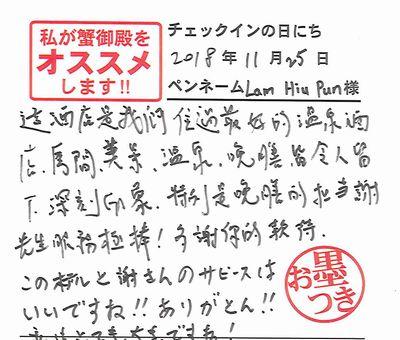 私が蟹御殿を
オススメ
します!!
チェックインの日にち
2018年11月25日
ペンネームLam Hiu Pun様
這酒店是我們住過最好的溫泉酒
店、房間、美景、溫泉、晚膳皆令人留
下深刻印象、特別是晚膳的担当謝
先生服務極棒!多謝你的款待.
このホテルと謝さんのサビースは
いいですね!!ありがとん!!
お墨つき